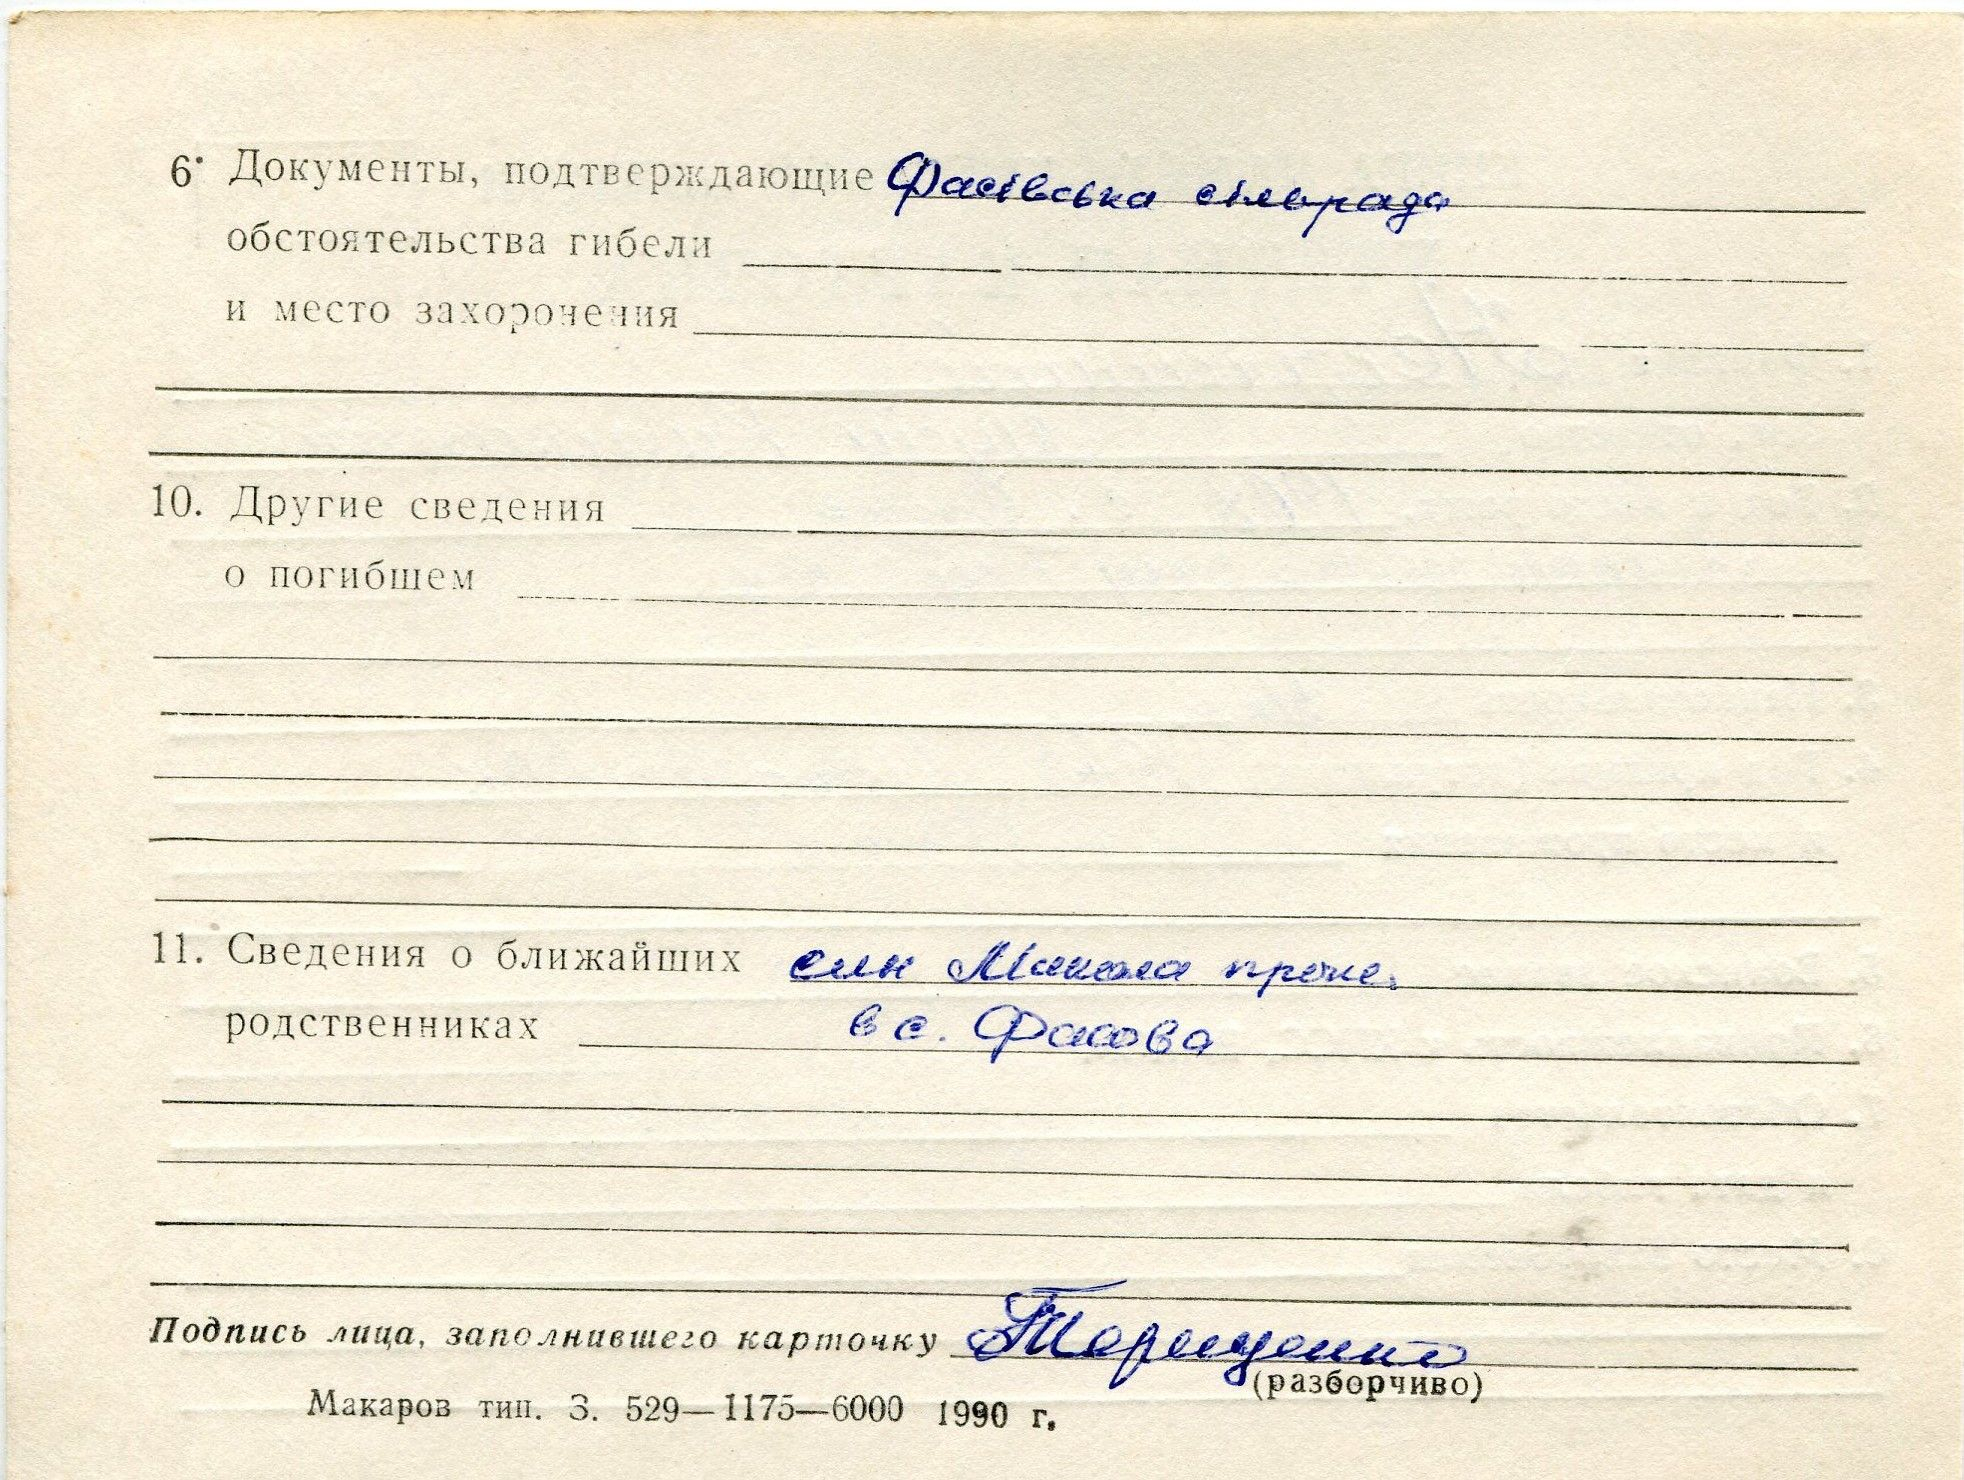 6. Документы, подтверждающие Фасівська сільрада
обстоятельства гибели
и место захоронения
10. Другие сведения
о погибшем
11. Сведения о ближайших син Микола прожи.
родственниках в с. Фасова
Подпись лица, заполнившего карточку Терещенко
(разборчиво)
Макаров тип. З. 529—1175—6000 1990 г.